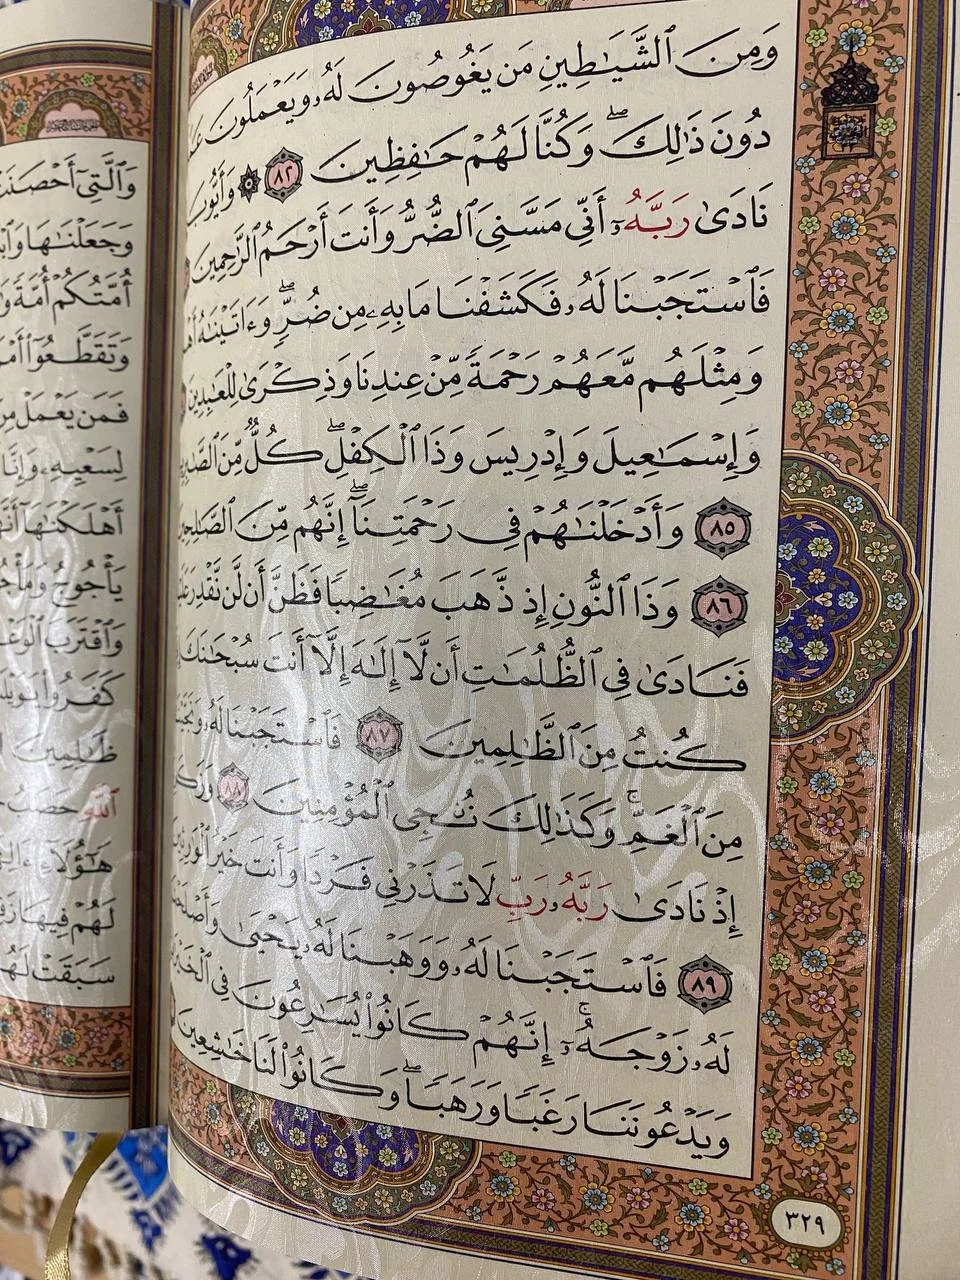 وَمِنَ ٱلشَّيَـٰطِينِ مَن يَغُوصُونَ لَهُۥ وَيَعْمَلُونَ
دُونَ ذَٰلِكَ ۖ وَكُنَّا لَهُمْ حَـٰفِظِينَ ٨٢ ۞ وَأَيُّوبَ
نَادَىٰ رَبَّهُۥٓ أَنِّى مَسَّنِىَ ٱلضُّرُّ وَأَنتَ أَرْحَمُ ٱلرَّٰحِمِينَ
فَٱسْتَجَبْنَا لَهُۥ فَكَشَفْنَا مَا بِهِۦ مِن ضُرٍّ ۖ وَءَاتَيْنَـٰهُ
وَمِثْلَهُم مَّعَهُمْ رَحْمَةً مِّنْ عِندِنَا وَذِكْرَىٰ لِلْعَـٰبِدِينَ
وَإِسْمَـٰعِيلَ وَإِدْرِيسَ وَذَا ٱلْكِفْلِ ۖ كُلٌّ مِّنَ ٱلصَّـٰبِرِينَ
٨٥ وَأَدْخَلْنَـٰهُمْ فِى رَحْمَتِنَآ ۖ إِنَّهُم مِّنَ ٱلصَّـٰلِحِينَ
٨٦ وَذَا ٱلنُّونِ إِذ ذَّهَبَ مُغَـٰضِبًا فَظَنَّ أَن لَّن نَّقْدِرَ عَلَيْهِ
فَنَادَىٰ فِى ٱلظُّلُمَـٰتِ أَن لَّآ إِلَـٰهَ إِلَّآ أَنتَ سُبْحَـٰنَكَ
كُنتُ مِنَ ٱلظَّـٰلِمِينَ ٨٧ فَٱسْتَجَبْنَا لَهُۥ
مِنَ ٱلْغَمِّ ۚ وَكَذَٰلِكَ نُـۨجِى ٱلْمُؤْمِنِينَ ٨٨
إِذْ نَادَىٰ رَبَّهُۥ رَبِّ لَا تَذَرْنِى فَرْدًا وَأَنتَ خَيْرُ ٱلْوَٰرِثِينَ
٨٩ فَٱسْتَجَبْنَا لَهُۥ وَوَهَبْنَا لَهُۥ يَحْيَىٰ وَأَصْلَحْنَا
لَهُۥ زَوْجَهُۥٓ ۚ إِنَّهُمْ كَانُوا۟ يُسَـٰرِعُونَ فِى ٱلْخَيْرَٰتِ
وَيَدْعُونَنَا رَغَبًا وَرَهَبًا ۖ وَكَانُوا۟ لَنَا خَـٰشِعِينَ
٣٢٩
وَٱلَّتِىٓ أَحْصَنَتْ
وَجَعَلْنَـٰهَا
أُمَّتُكُمْ أُمَّةً
وَتَقَطَّعُوٓا۟
فَمَن يَعْمَلْ مِنَ
لِسَعْيِهِۦ وَإِنَّا
أَهْلَكْنَـٰهَآ
يَأْجُوجُ وَمَأْجُوجُ
وَٱقْتَرَبَ ٱلْوَعْدُ
كَفَرُوا۟ يَـٰوَيْلَنَا
ظَـٰلِمِينَ
ٱللَّهِ حَصَبُ
هَـٰٓؤُلَآءِ
لَهُمْ فِيهَا
سَبَقَتْ لَهُم